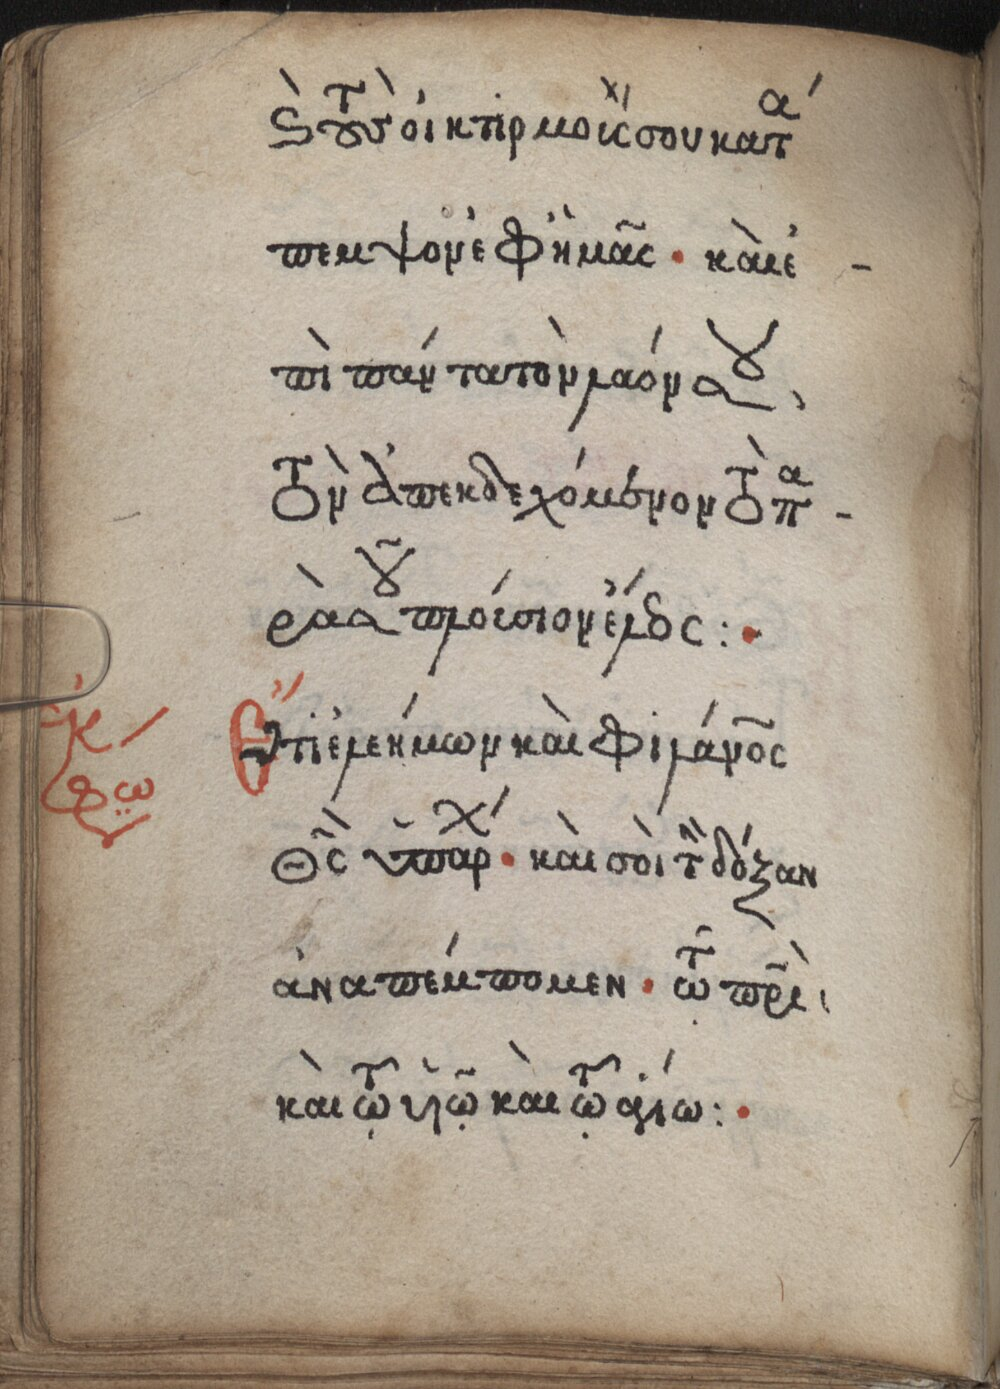 ϛ τοὺς οἰκτιρμούς σου κατά
πεμψον ἐφ ἡμᾶς · καὶ ἐ-
πὶ πάντα τὸν λαόν σου,
τὸν ἀπεκδεχόμενον τὸ πα-
ρὰ σοῦ πλούσιον ἔλεος :·
ἐκφώ
Ὅτι ἐλεήμων καὶ φιλάνος
θς ὑπάρχ · καὶ σοὶ τὴν δόξαν
ἀναπέμπομεν · τῷ πρὶ
καὶ τῷ υἱῷ καὶ τῷ ἁγίω :·